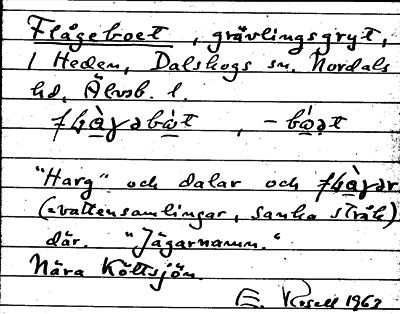 Flågeboet, grävlingsgryt,
i Heden, Dalskogs sn. Nordals
hd, Älvsb. l.
"Harg" och dalar och
(=vattensamlingar, sanka stråk)
där. "Jägarnamn."
Nära Köttsjön.
E. Rosell 1967